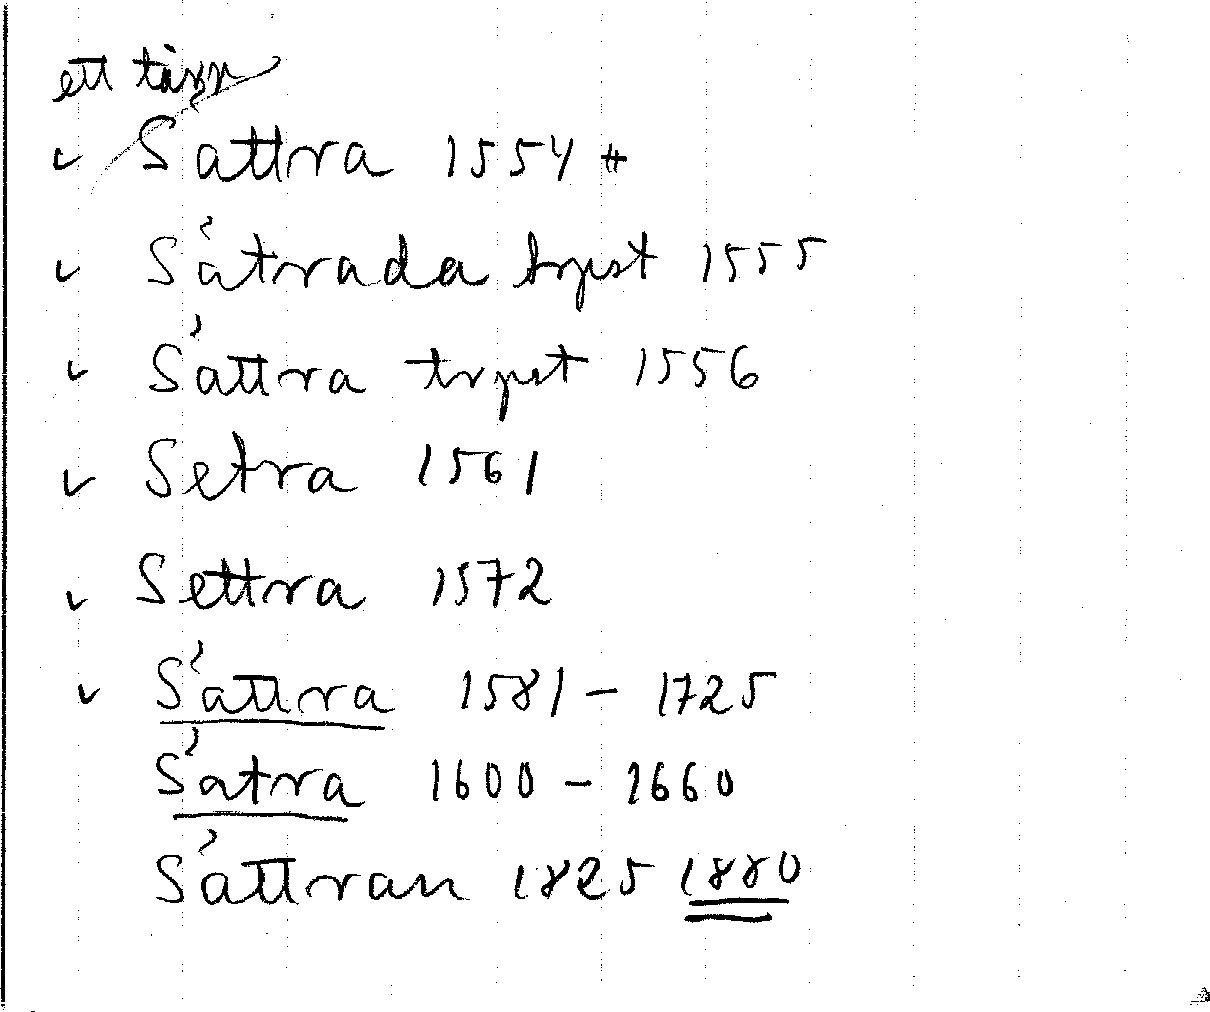 ett
Sattra 1554 #
Såtrada trpst 1555
Såttra trpst 1556
Setra 1561
Settra 1572
Såttra 1581 – 1725
Såtra 1600 – 1660
Såttran 1825 1880